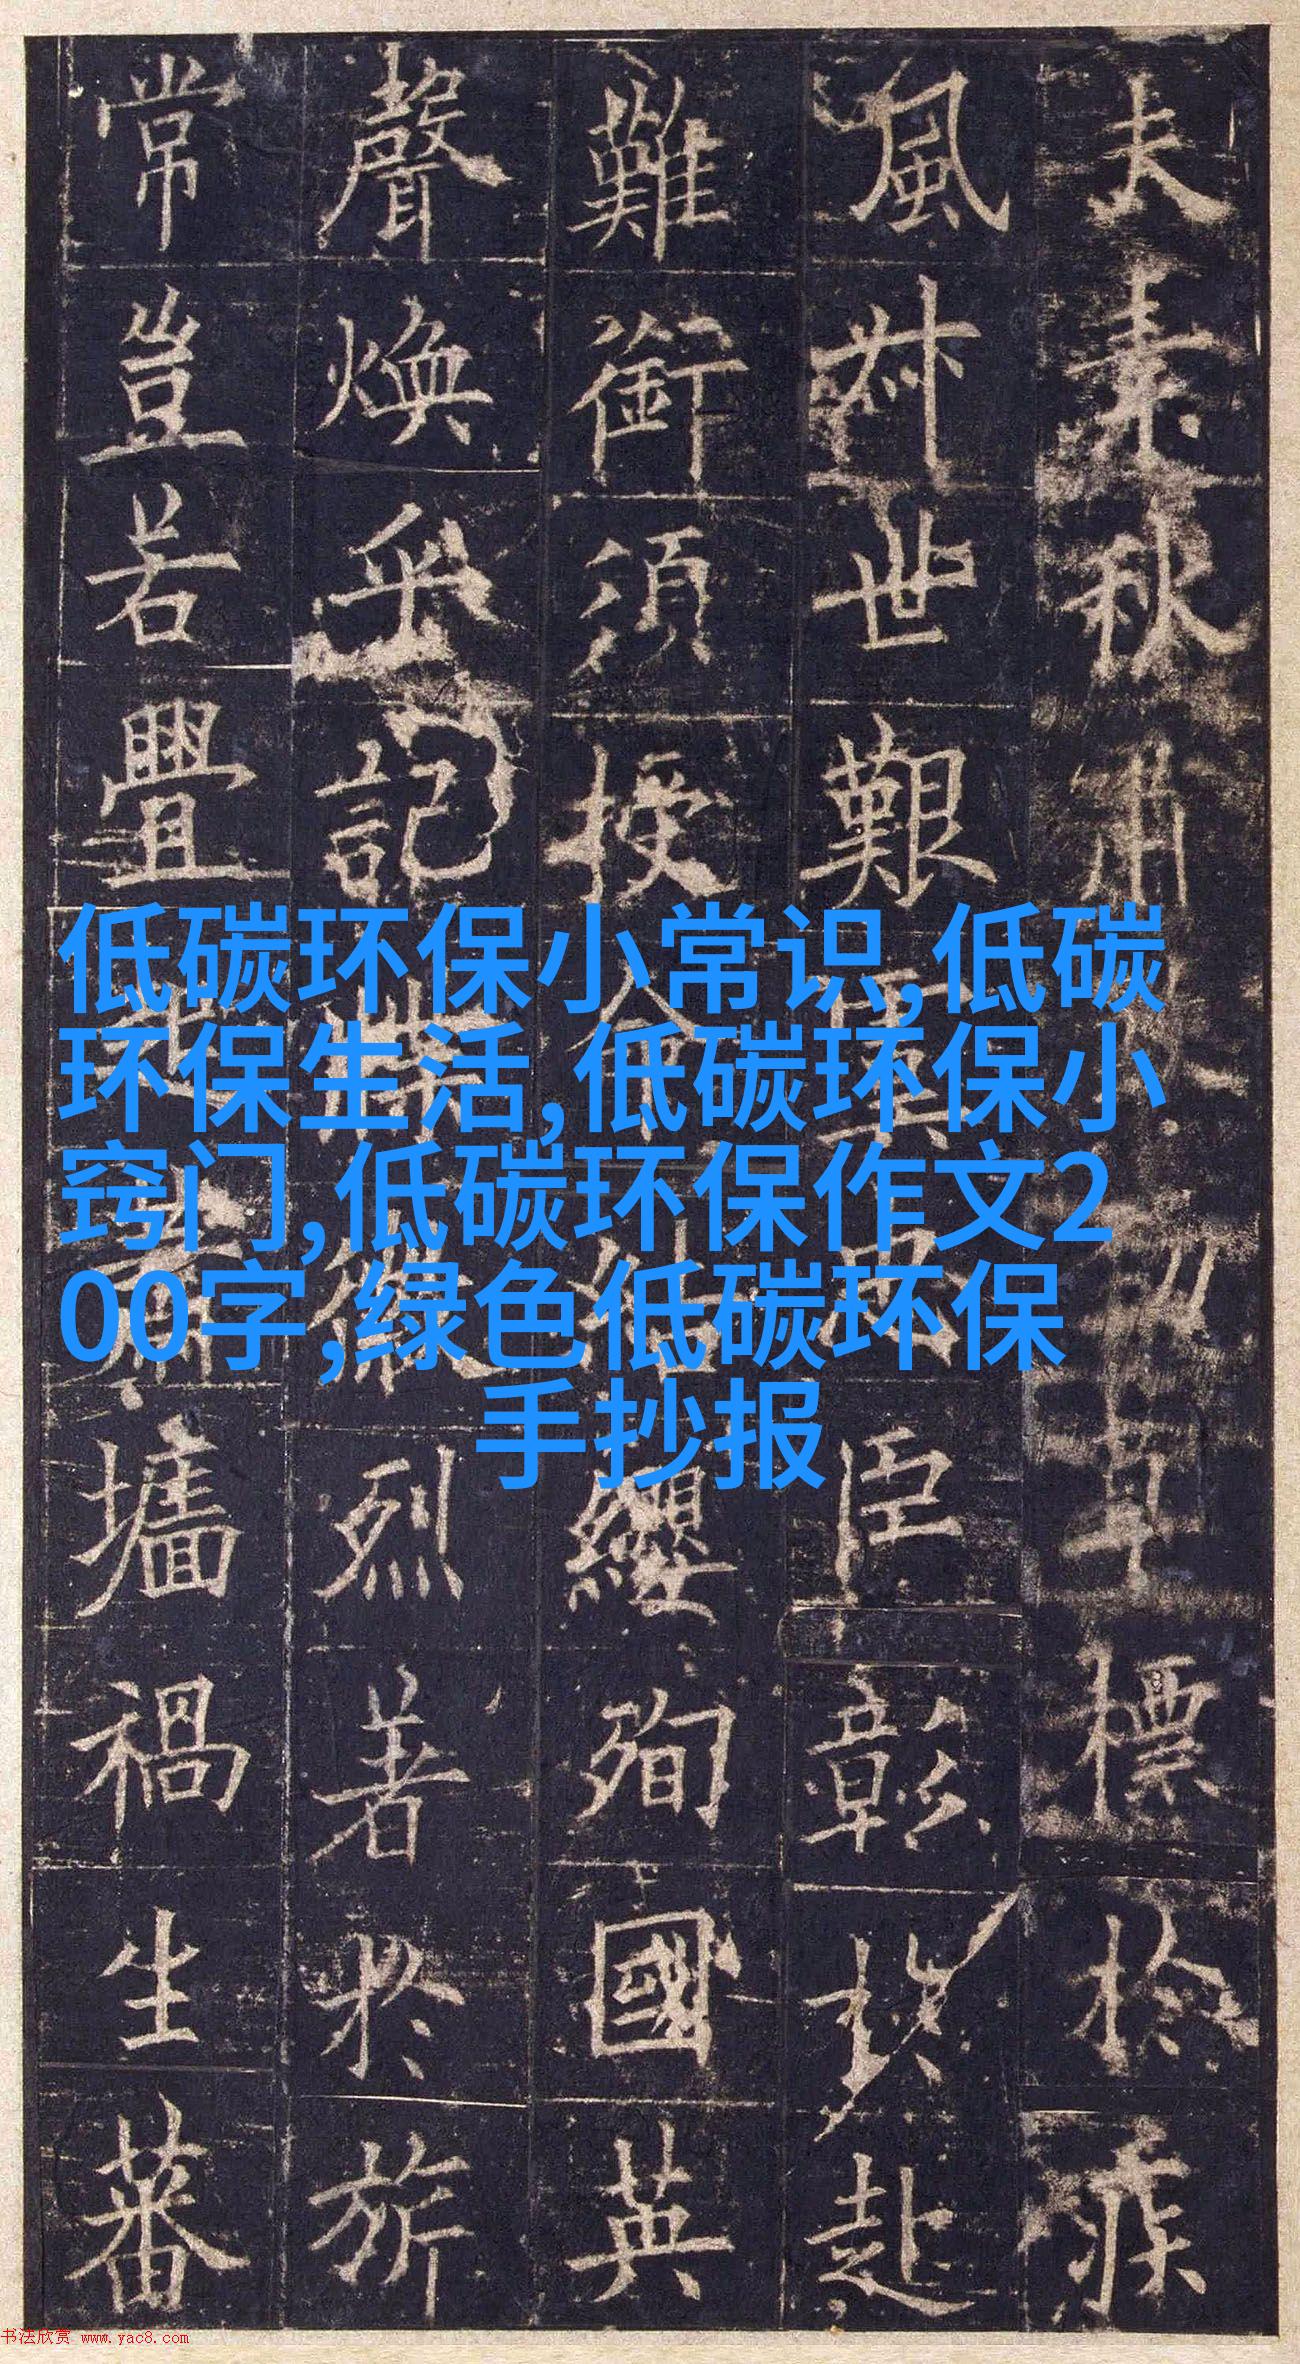 夫素秋肅勁草標於疾
風叔世艱虞忠臣彰於赴
難銜須授命結纓殉國英
聲煥乎記牒徽烈著於旂
常豈若釁起蕭墻禍生蕃
低碳环保小常识,低碳
环保生活,低碳环保小
窍门,低碳环保作文2
00字,绿色低碳环保
手抄报
书法欣赏 www.yac8.com